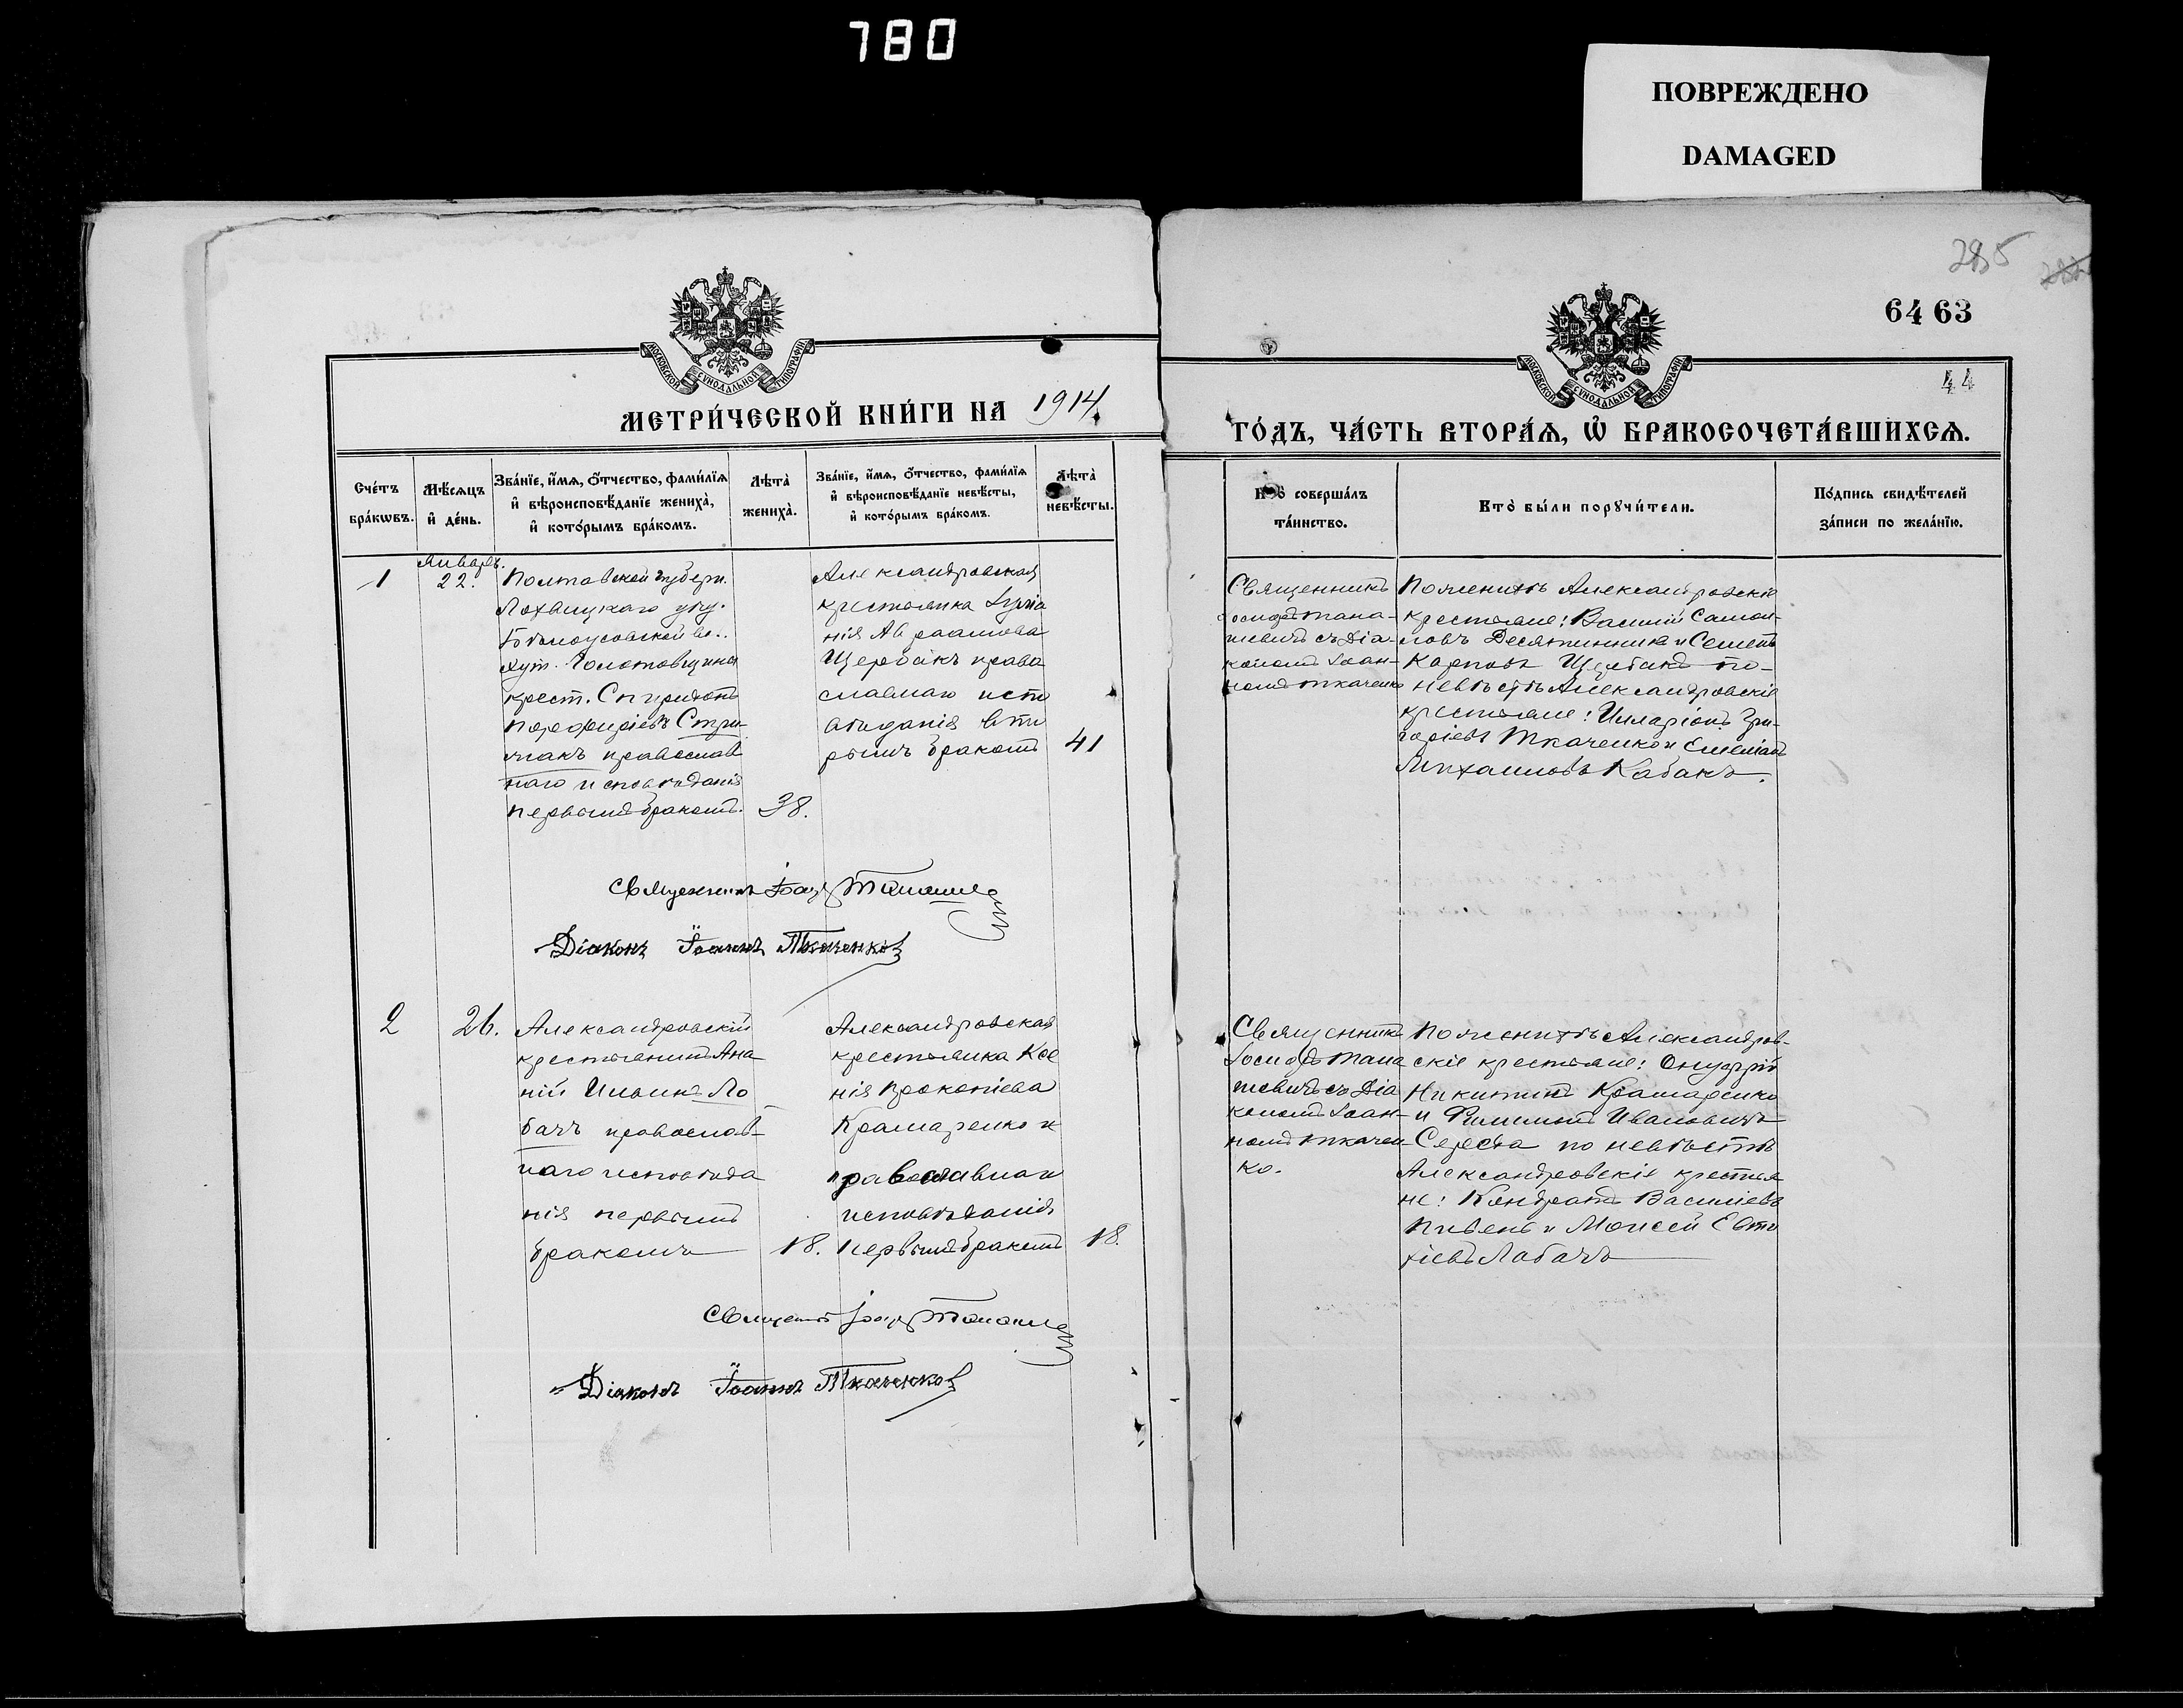 780
ПОВРЕЖДЕНО
DAMAGED
285
64 63
44
МОСКОВСКОЙ СѴНОДАЛЬНОЙ ТИПОГРАФІИ
МОСКОВСКОЙ СѴНОДАЛЬНОЙ ТИПОГРАФІИ
МЕТРИ́ЧЕСКОЙ КНИ́ГИ НА 1914
ГО́ДЪ, ЧА́СТЬ ВТОРА́Ѧ, Ѡ҆ БРАКОСОЧЕТА́ВШИХСѦ.
Сче́тъ
бра́кѡвъ.
Мѣ́сѧцъ
и҆ де́нь.
Зва́нїе, и҆́мѧ, ѻ҆́тчество, фами́лїѧ
и҆ вѣроисповѣ́данїе жениха̀,
и҆ кото́рымъ бра́комъ.
Лѣ́та̀
жениха̀.
Зва́нїе, и҆́мѧ, ѻ҆́тчество, фами́лїѧ
и҆ вѣроисповѣ́данїе невѣ́сты,
и҆ кото́рымъ бра́комъ.
Лѣ́та̀
невѣ́сты.
Кто̀ соверша́лъ
та́инство.
Кто̀ бы́ли порꙋчи́тели.
По́дпись свидѣ́телей
за́писи по жела́нїю.
1
Январь.
22.
Полтавской губерн.
Лохвицкаго уѣз.
Бѣлоусовской во..
хут.
крест. Спиридонъ
Порфиріевъ Стри
жакъ православ
наго исповѣданія
первымъ бракомъ.
38.
Александровская
крестьянка Лукіа
нія Авраамова
Щербакъ право
славнаго испо
вѣданія вто
рымъ бракомъ
41
Священникъ
Іосифъ Тана-
шевичъ съ Діа-
кономъ Іоан-
номъ Ткаченко
По женихѣ Александровскіе
крестьяне: Василій Самой-
ловъ Десятникъ и Семенъ
Карповъ Щербакъ по
невѣстѣ Александровскіе
крестьяне: Илларіонъ Гри-
горіевъ Ткаченко и Емеліанъ
Михаиловъ Кабакъ.
Священникъ Іосиф
Діаконъ Іоаннъ Ткаченко
2
26.
Александровскій
крестьянинъ Ана
ній Ильинъ Ло
бачъ православ-
наго исповѣда
нія первымъ
бракомъ
18.
Александровская
крестьянка Ксе
нія Прокопіева
Крамаренко и
православнаго
исповѣданія
первымъ бракомъ
18.
Священникъ
Іосифъ Тана
шевичъ съ Діа
кономъ Іоан-
номъ Ткачен-
ко.
По женихѣ Александров-
скіе крестьяне: Онуфрій
Никитинъ Крамаренко
и Филиппъ Ивановичъ
Середа по невѣстѣ
Александровскіе крестья
не: Кондратъ Василіевъ
Пивень и Моисей Евти
хіевъ Лобачъ
Священникъ Іосиф
Діаконъ Іоаннъ Ткаченко